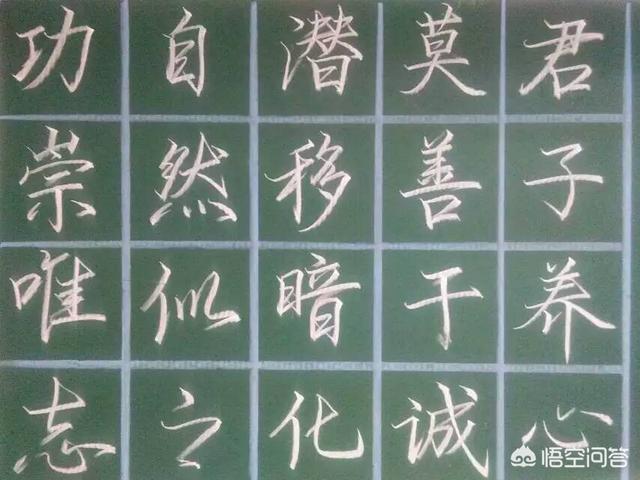 君子养心
莫善于诚
潜移暗化
自然似之
功崇唯志
悟空问答